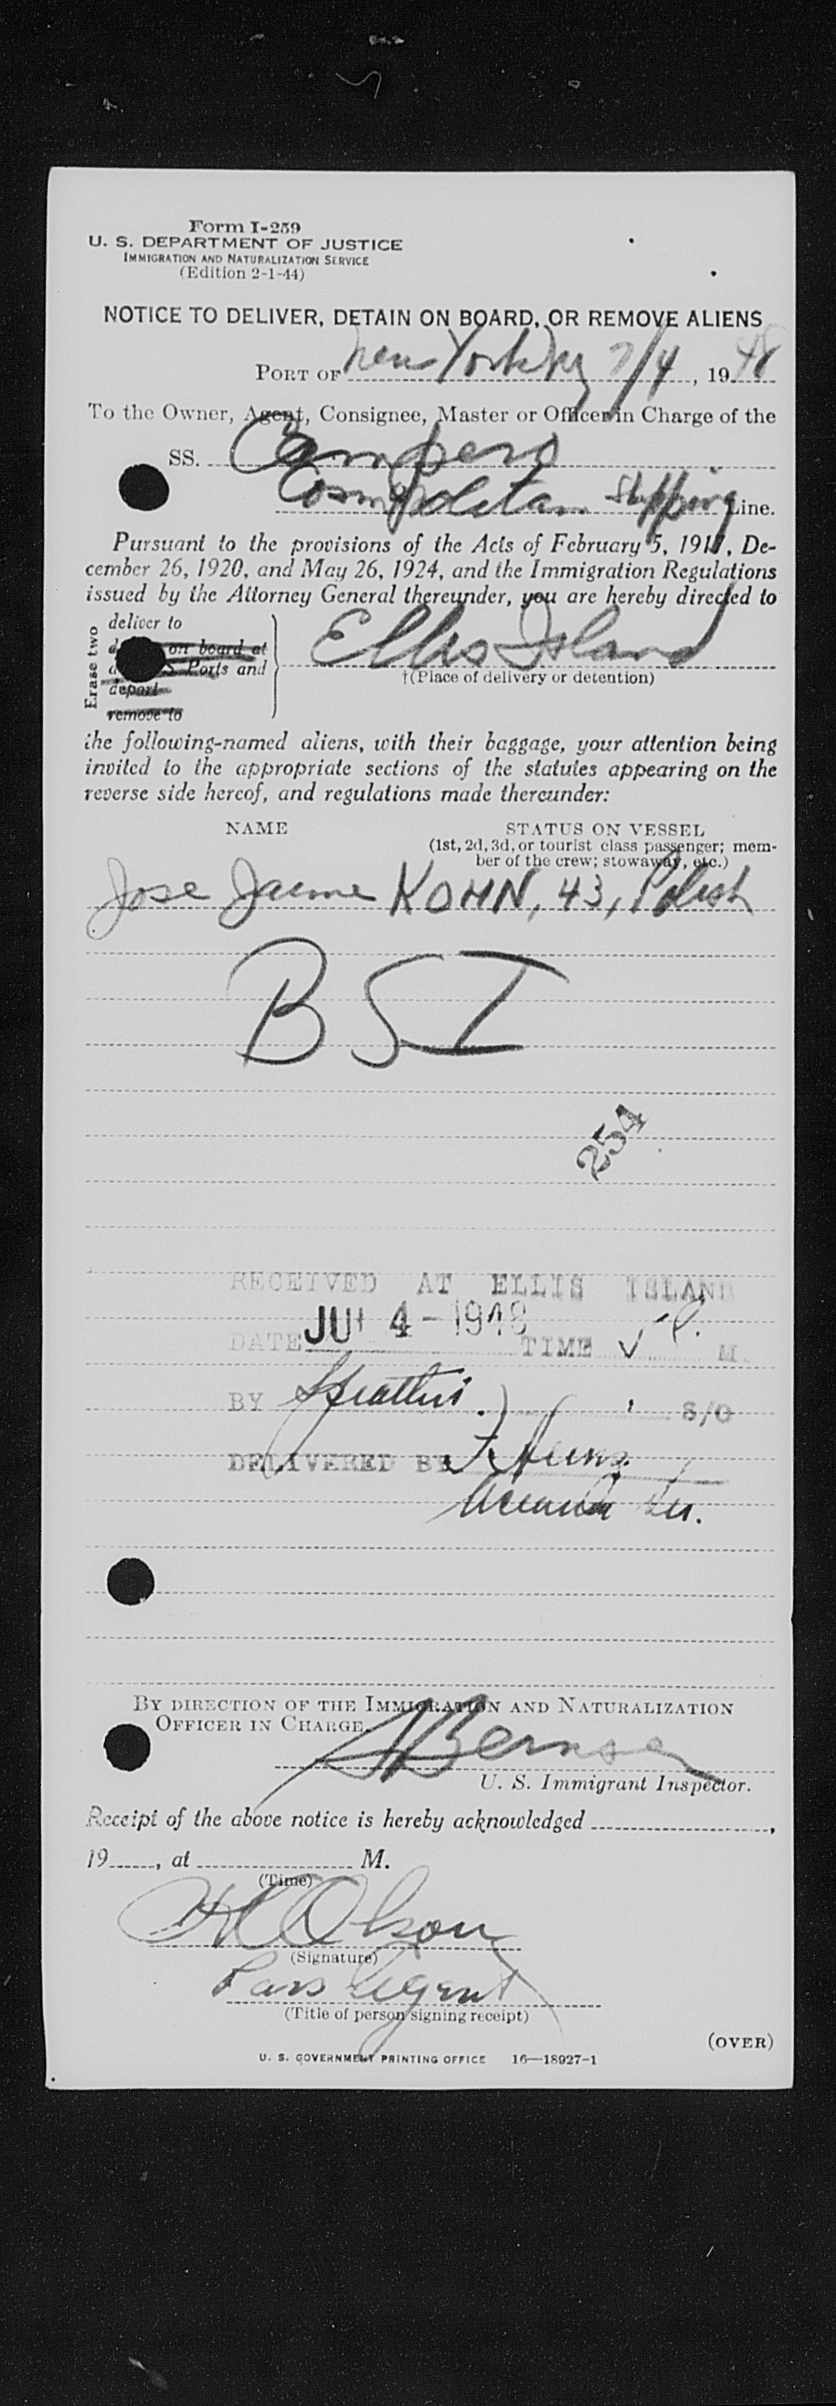 Form I-259
U. S. DEPARTMENT OF JUSTICE
IMMIGRATION AND NATURALIZATION SERVICE
(Edition 2-1-44)
NOTICE TO DELIVER, DETAIN ON BOARD, OR REMOVE ALIENS
PORT OF New York Ny 7/4, 1948
To the Owner, Agent, Consignee, Master or Officer in Charge of the
SS. Campero
Cosmopolitan Shipping Line.
Pursuant to the provisions of the Acts of February 5, 1917, De-
cember 26, 1920, and May 26, 1924, and the Immigration Regulations
issued by the Attorney General thereunder, you are hereby directed to
Erase two
deliver to
on board at
S Ports and
deport
remove to
Ellis Island
†(Place of delivery or detention)
the following-named aliens, with their baggage, your attention being
invited to the appropriate sections of the statutes appearing on the
reverse side hereof, and regulations made thereunder:
NAME STATUS ON VESSEL
(1st, 2d, 3d, or tourist class passenger; mem-
ber of the crew; stowaway, etc.)
Jose Jaime KOHN, 43, Polish
BSI
254
RECEIVED AT ELLIS ISLAND
DATE JUL 4 - 1948 TIME M.
BY S/O
DELIVERED BY
BY DIRECTION OF THE IMMIGRATION AND NATURALIZATION
OFFICER IN CHARGE.
U. S. Immigrant Inspector.
Receipt of the above notice is hereby acknowledged ,
19 , at M.
(Time)
H Olson
(Signature)
Pass Agent
(Title of person signing receipt)
(OVER)
U. S. GOVERNMENT PRINTING OFFICE 16—18927-1